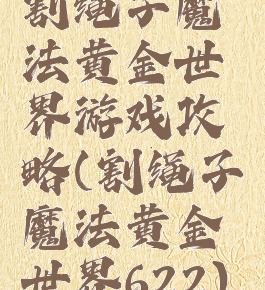 割绳子魔
法黄金世
界游戏攻
略(割绳子
魔法黄金
世界622)